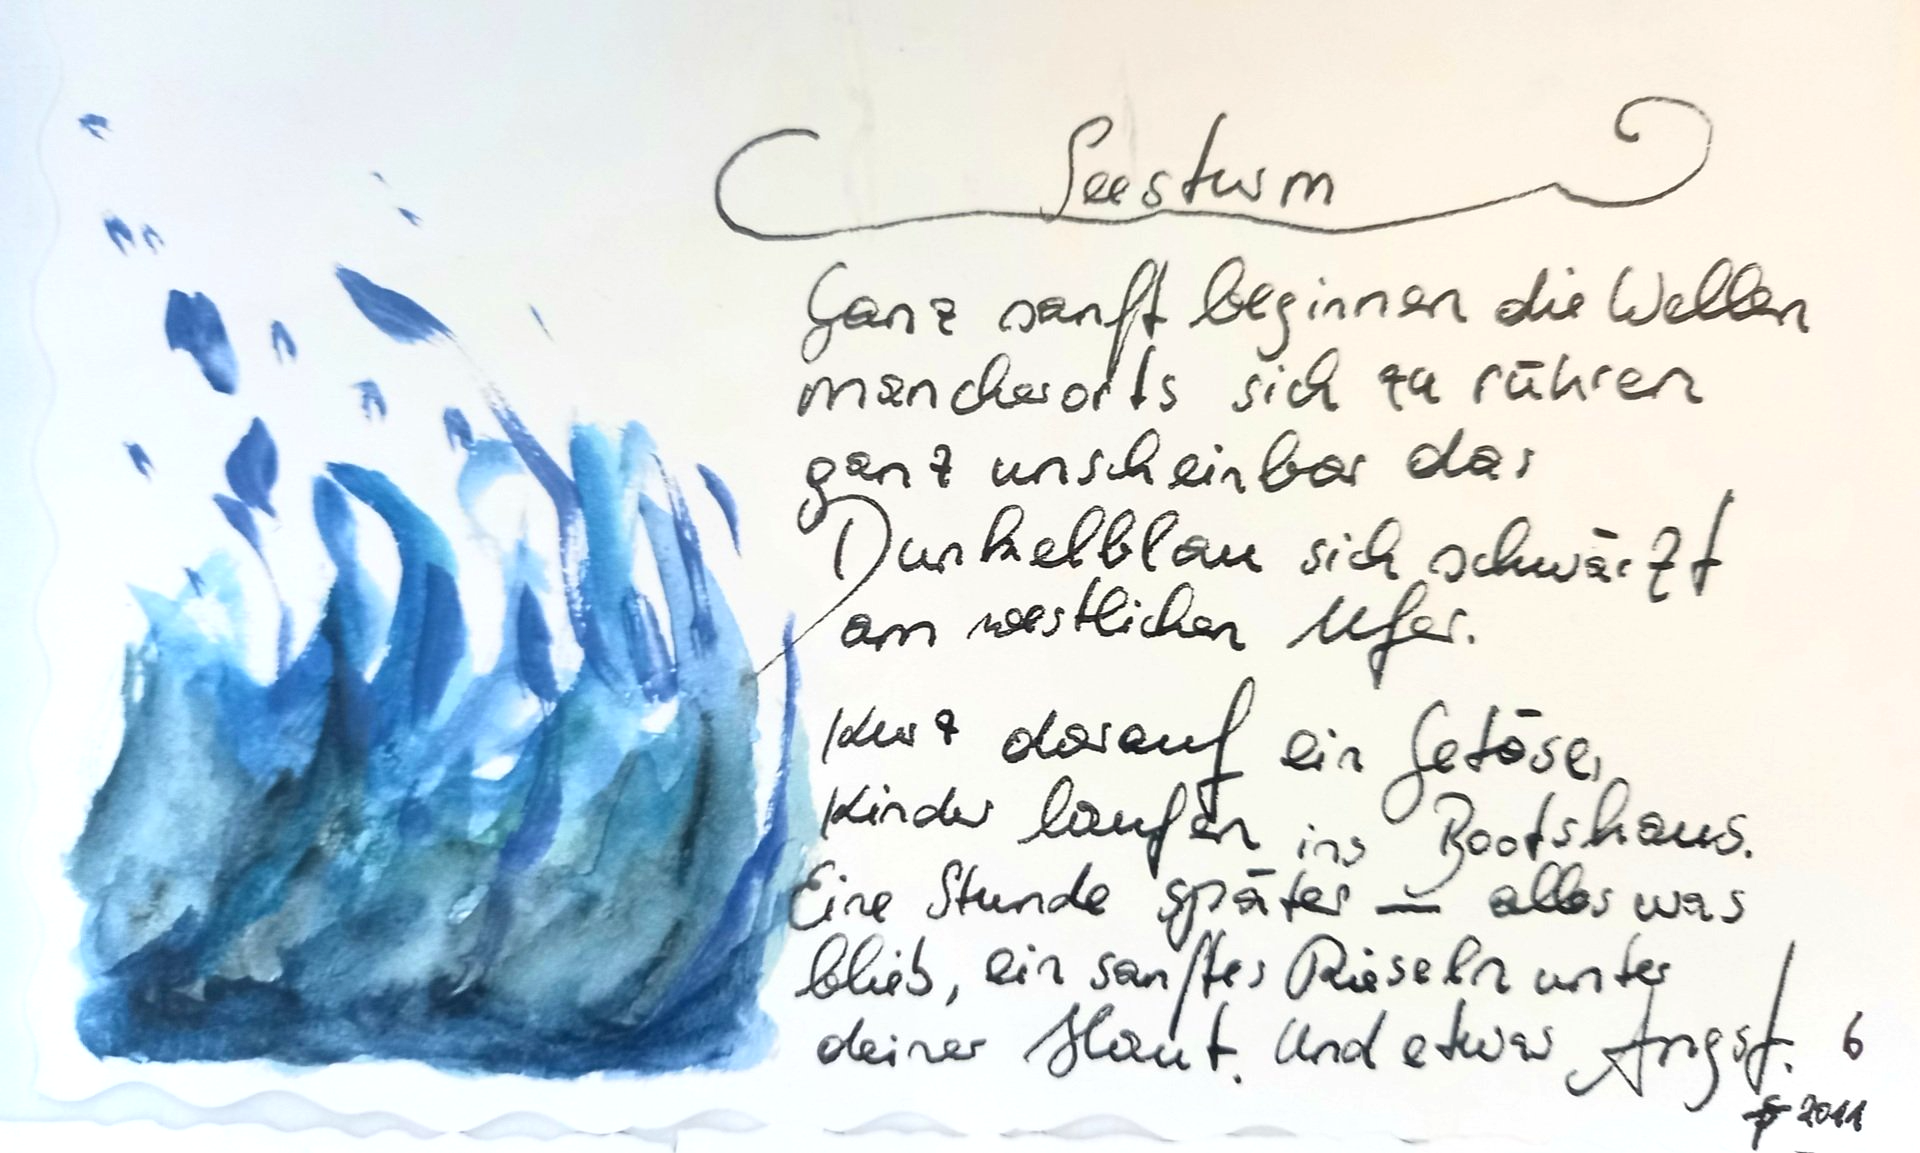 Seesturm
Ganz sanft beginnen die Wellen
mancherorts sich zu rühren
ganz unscheinbar das
Dunkelblau sich schwärzt
am westlichen Ufer.
Kurz darauf ein Getöse,
Kinder laufen ins Bootshaus.
Eine Stunde später — alles was
blieb, ein sanftes Rieseln unter
deiner Haut. Und etwas Angst. 6
2011